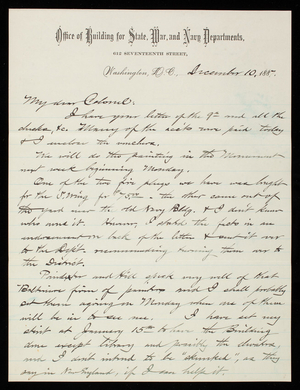 Office of Building for State, War, and Navy Departments,
612 SEVENTEENTH STREET,
Washington, D. C., December 10, 188
My dear Colonel:
I have your letter of the 9th and all the
checks, &c. Many of the accts were paid today
& I enclose the vouchers.
We will do the painting in the Monument
next week beginning Monday.
One of the two fire plugs we have was bought
for the S. Wing for $75.00 - the other came out of
the yard near the old Navy Bldg. & I don't know
who owns it. However, I stated the facts in an
endorsement on back of the letter & sent it over
to the Dept. recommending turning them over to
the District.
and Hill speak very well of that
Baltimore firm of painters and I shall probably
see them again on Monday when one of them
will be in to see me. I have set my
at January 15th to have the Building
done except library and possibly the
and I don't intend to be "skunked", as they
say in New England, if I can help it.